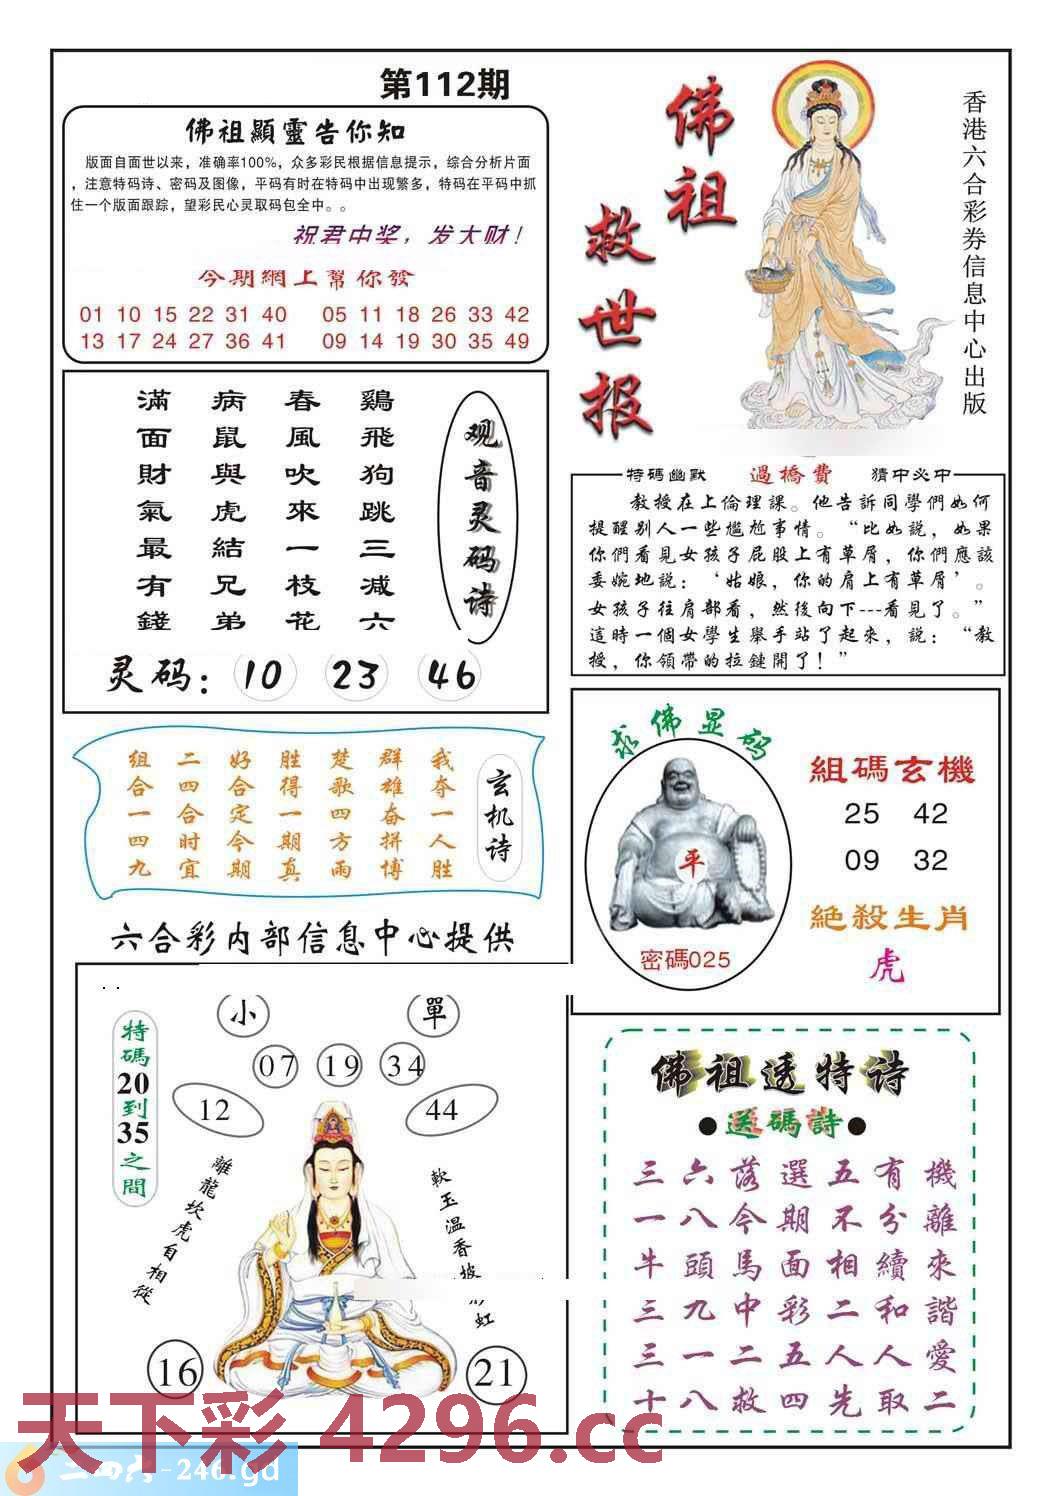 第112期
佛祖顯靈告你知
版面自面世以来，准确率100%，众多彩民根据信息提示，综合分析片面
，注意特码诗、密码及图像，平码有时在特码中出现繁多，特码在平码中抓
住一个版面跟踪，望彩民心灵取码包全中。。
祝君中奖，发大财！
今期網上幫你發
01 10 15 22 31 40 05 11 18 26 33 42
13 17 24 27 36 41 09 14 19 30 35 49
佛祖
救世报
香港六合彩券信息中心出版
观音灵码诗
鷄飛狗跳三减六
春風吹來一枝花
病鼠與虎結兄弟
滿面財氣最有錢
灵码：10 23 46
特碼幽默 過橋費 猜中必中
教授在上倫理課。他告訴同學們如何
提醒别人一些尷尬事情。“比如説，如果
你們看見女孩子屁股上有草屑，你們應該
委婉地説：‘姑娘，你的肩上有草屑’。
女孩子往肩部看，然後向下---看見了。”
這時一個女學生舉手站了起來，説：“教
授，你領帶的拉鏈開了！”
玄机诗
我夺一人胜
群雄奋拼博
楚歌四方雨
胜得一期真
好合定今期
二四合时宜
组合一四九
求佛显码
平
密碼025
組碼玄機
25 42
09 32
絕殺生肖
虎
六合彩内部信息中心提供
特碼20到35之間
小 單
07 19 34
12 44
離龍坎虎自相從
軟玉温香披
虹
16 21
佛祖透特诗
●送碼詩●
三六落選五有機
一八今期不分離
牛頭馬面相續來
三九中彩二和諧
三一二五人人愛
十八救四先取二
天下彩 4296.cc
二四六-246.gd